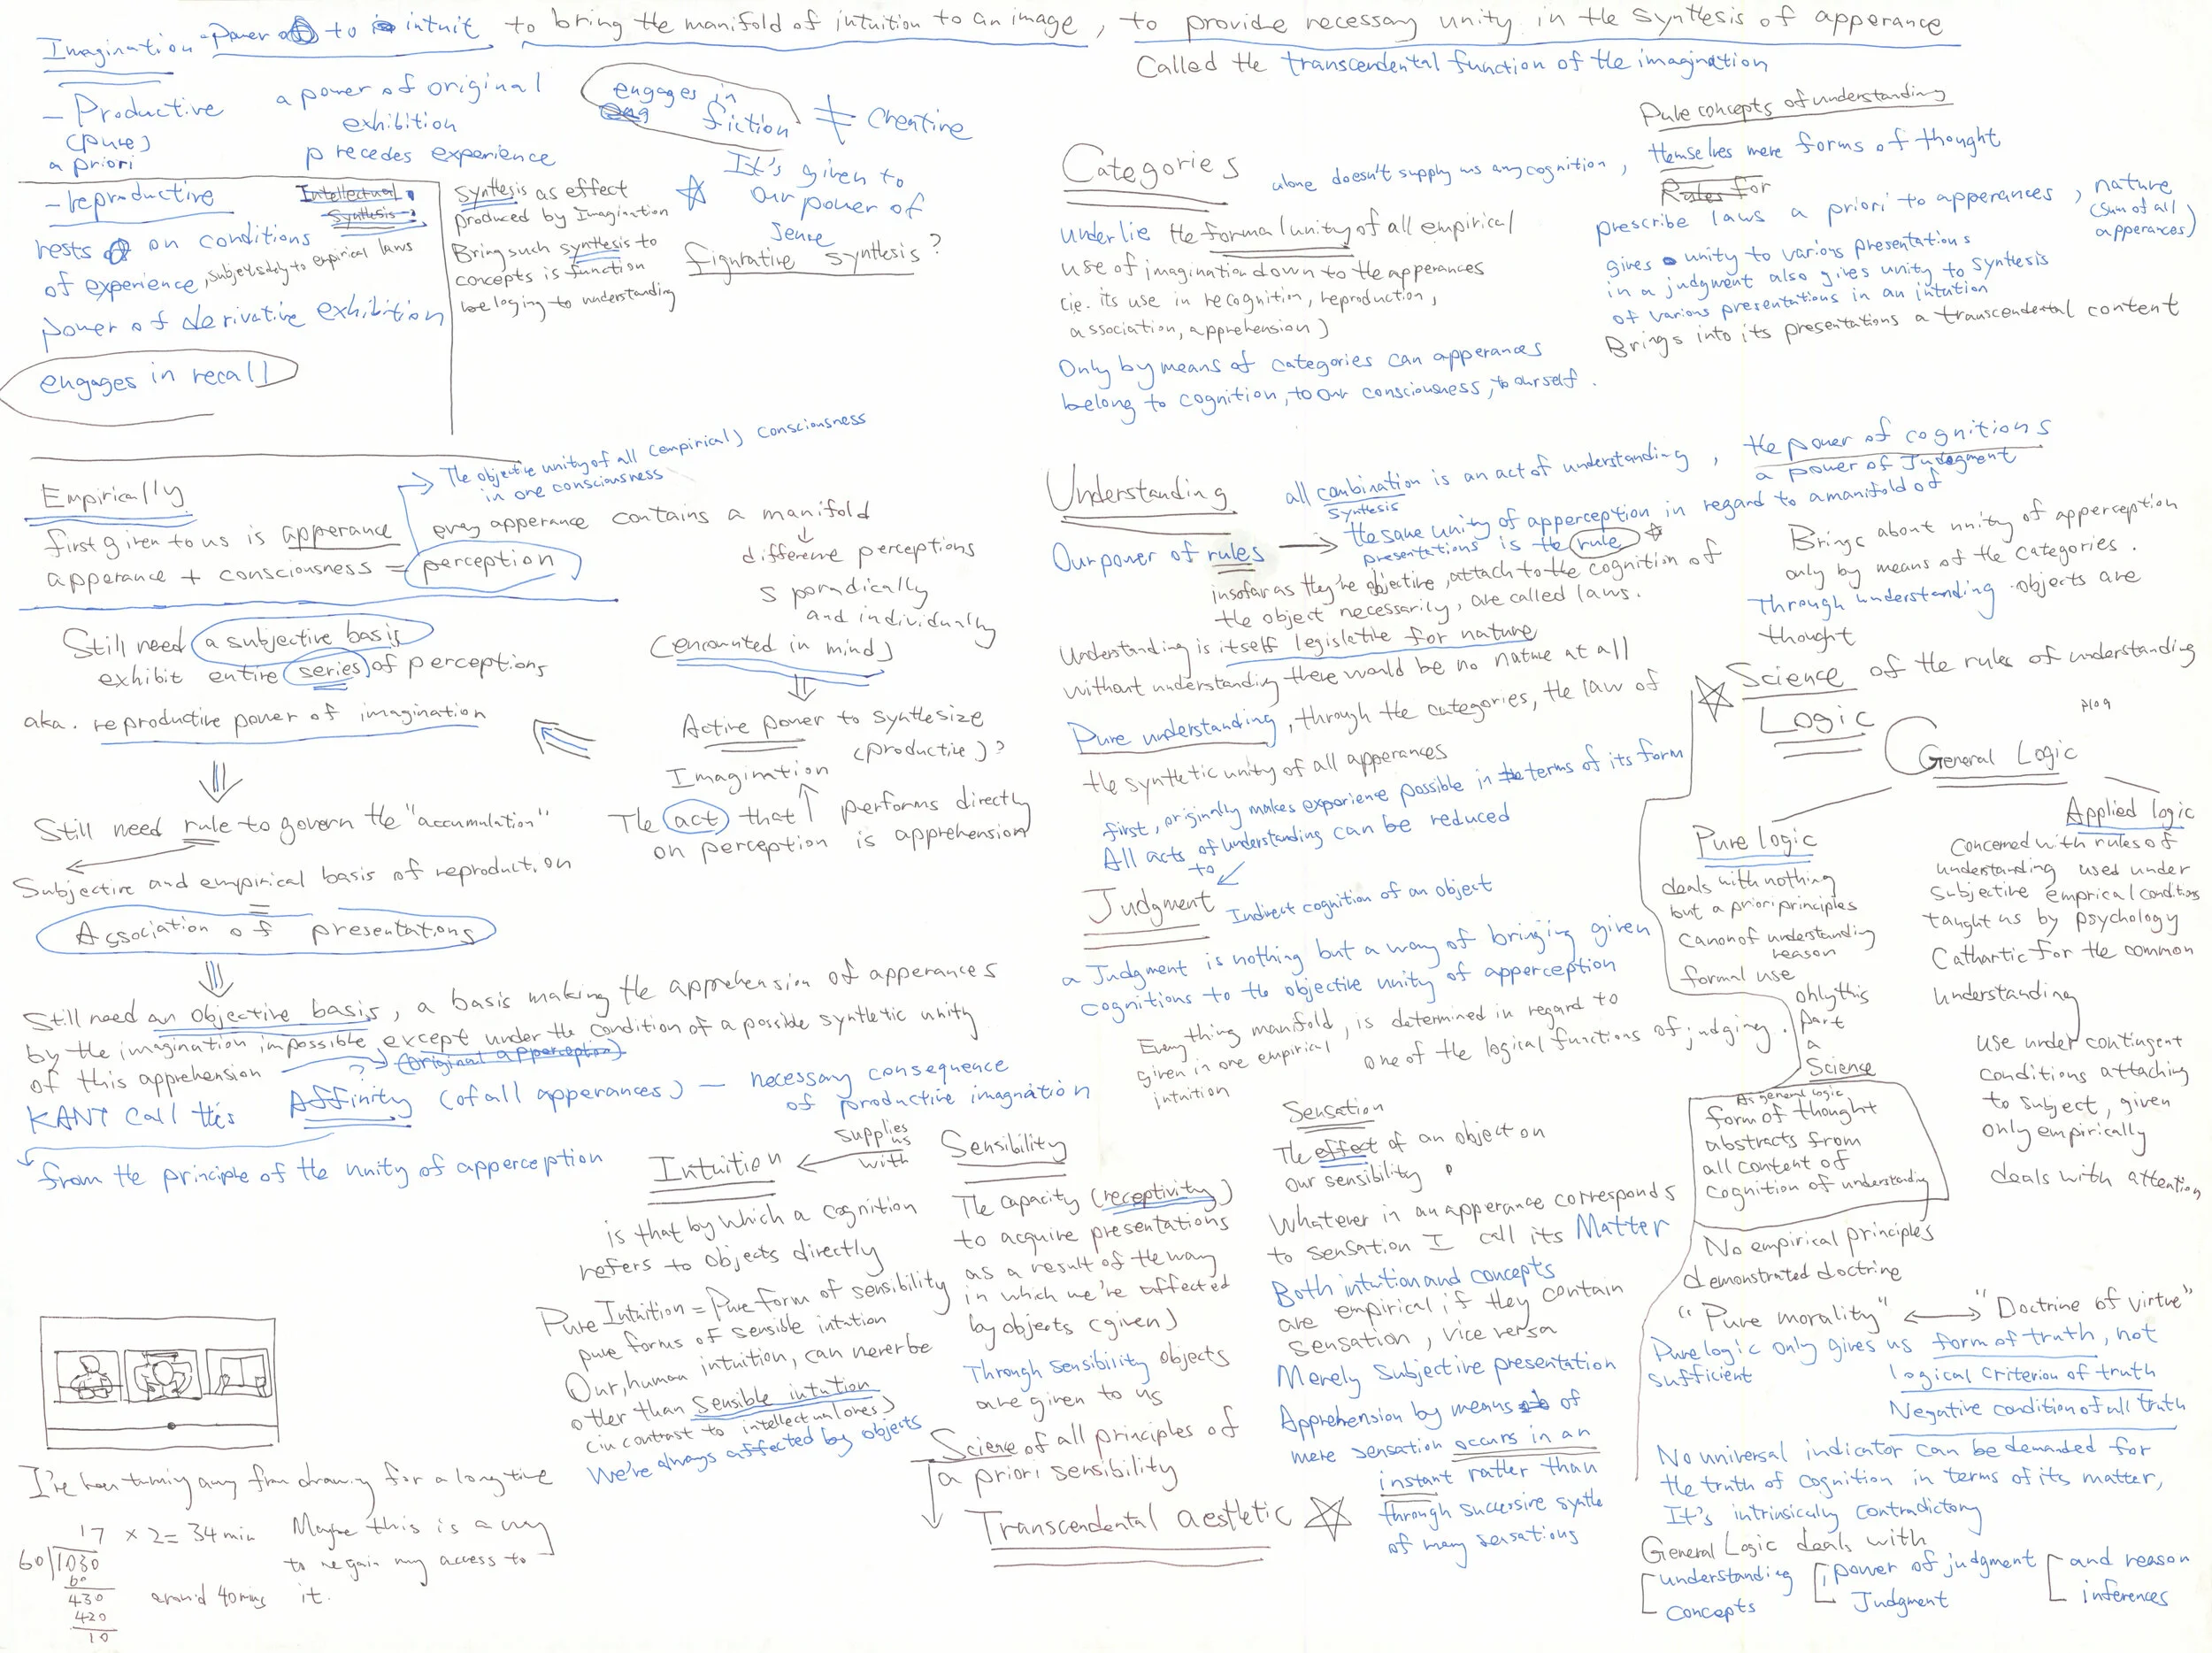 Imagination - Power to intuit to bring the manifold of intuition to an image, to provide necessary unity in the synthesis of apperance
Called the transcendental function of the imagination
- Productive
(pure)
a priori
a power of original
exhibition
precedes experience
engages in
fiction ≠ Creative
It's given to
our power of
sense
- reproductive
Intellectual
Synthesis
rests on conditions
of experience, subject solely to empirical laws
power of derivative exhibition
engages in recall
Synthesis as effect
produced by Imagination
Bring such synthesis to
concepts is function
beloging to understanding
figurative synthesis?
Categories
alone doesn't supply us any cognition,
underlie the formal unity of all empirical
use of imagination down to the apperances
(ie. its use in recognition, reproduction,
association, apprehension)
Only by means of categories can apperances
belong to cognition, to our consciousness, to ourself.
Pure concepts of understanding
themselves mere forms of thought
Rules for
prescribe laws a priori to apperances, nature
(sum of all
apperances)
gives unity to various presentations
in a judgment also gives unity to synthesis
of various presentations in an intuition
Brings into its presentations a transcendental content
Empirically
first given to us is apperance
apperance + consciousness = perception
The objective unity of all (empirical) consciousness
in one consciousness
every apperance contains a manifold
different perceptions
sporadically
and individually
(encounted in mind)
Active power to synthesize
(productive)?
Imagination
The act that performs directly
on perception is apprehension
Still need a subjective basis
exhibit entire series of perceptions
aka. reproductive power of imagination
Still need rule to govern the "accumulation"
Subjective and empirical basis of reproduction
=
Association of presentations
Still need an objective basis, a basis making the apprehension of apperances
by the imagination impossible except under the condition of a possible synthetic unity
of this apprehension
? (original apperception)
KANT call this Affinity (of all apperances) — necessary consequence
of productive imagnation
from the principle of the unity of apperception
Understanding
all combination is an act of understanding, the power of cognitions
synthesis
a power of Judgment
Our power of rules
the same unity of apperception in regard to a manifold of
presentations is the rule
insofar as they're objective, attach to the cognition of
the object necessarily, are called laws.
Understanding is itself legislative for nature
without understanding there would be no nature at all
Pure understanding, through the categories, the law of
the synthetic unity of all apperances
first, originally makes experience possible in terms of its form
All acts of understanding can be reduced
to
Brings about unity of apperception
only by means of the categories.
Through understanding objects are
thought
Judgment
Indirect cognition of an object
a Judgment is nothing but a way of bringing given
cognitions to the objective unity of apperception
Every thing manifold, is determined in regard to
given in one empirical one of the logical functions of judging.
intuition
Science of the rules of understanding
Logic
P109
General Logic
Pure logic
deals with nothing
but a priori principles
Canon of understanding
reason
formal use
only this
part
a
Science
As general logic
form of thought
abstracts from
all content of
cognition of understanding
No empirical principles
demonstrated doctrine
"Pure morality" ↔ "Doctrine of virtue"
Pure logic only gives us form of truth, not
sufficient
logical criterion of truth
Negative condition of all truth
No universal indicator can be demanded for
the truth of cognition in terms of its matter,
It's intrinsically contradictory
General Logic deals with
understanding
Concepts
power of judgment
Judgment
and reason
inferences
Applied logic
Concerned with rules of
understanding used under
subjective emprical conditions
taught us by psychology
Cathartic for the common
understanding
use under contingent
conditions attaching
to subject, given
only empirically
deals with attention
Intuition
supplies
us
with
Sensibility
is that by which a cognition
refers to objects directly
Pure Intuition = Pure form of sensibility
pure forms of sensible intution
Our, human intuition, can never be
other than sensible intution
(in contrast to intellectual ones)
We're always affected by objects
The capacity (receptivity)
to acquire presentations
as a result of the way
in which we're affected
by objects (given)
Through sensibility objects
are given to us
Science of all principles of
a priori sensibility
Transcendental aesthetic
Sensation
The effect of an object on
our sensibility
Whatever in an apperance corresponds
to sensation I call its Matter
Both intuition and concepts
are empirical if they contain
sensation, vice versa
Merely Subjective presentation
Apprehension by means of
mere sensation occurs in an
instant rather than
through successive synthe
of many sensations
I've been turning away from drawing for a long time
17 × 2 = 34 min
60 1030
60
430
420
10
around 40 mins
Maybe this is a way
to regain my access to
it.